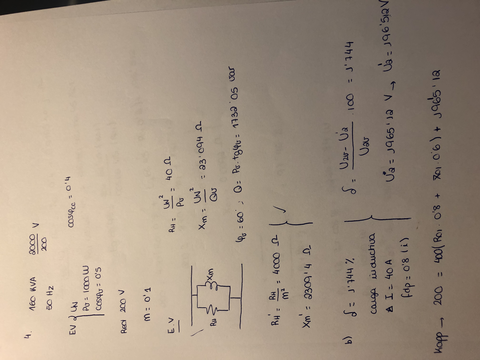 4. 160 kVA 2000/200 V
50 Hz cosφcc = 0'4
EV { UN
P0 = 1000 W
cosφ0 = 0'5
Aa01 200 V
m = 0'1
E.V
RH Xm
RH = UN²/P0 = 40 Ω
Xm = UN²/Q0 = 23'094 Ω
φ0 = 60° ; Q = P0 · tgφ0 = 1732'05 var
RH' = RH/m² = 4000 Ω
Xm' = 2309'4 Ω
b) δ = 1'744 %
carga inductiva
I = 40 A
fdp = 0'8 (i)
δ = U2v - U2/U2v · 100 = 1'744
U2' = 1965'12 V → U2 = 196'512 V
Kapp → 200 = 400(Rcc 0'8 + Xcc 0'6) + 1965'12